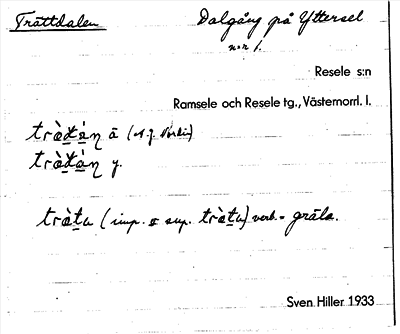 Trättdalen
Dalgång på Yttersel
n:r 1.
Resele s:n
Ramsele och Resele tg., Västernorrl. l.
tròtàn ä
tròtàn y.
tròta (imp. sup. tròta) verb = gräla.
Sven Hiller 1933